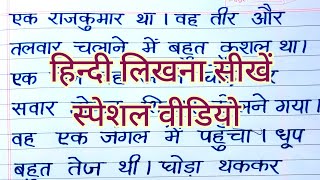 एक राजकुमार था। वह तीर और
तलवार चलाने में बहुत कुशल था।
एक
हिन्दी लिखना सीखें
सवार गया।
स्पेशल वीडियो
वह एक जंगल में पहुंचा। धूप
बहुत तेज थी। घोड़ा थककर